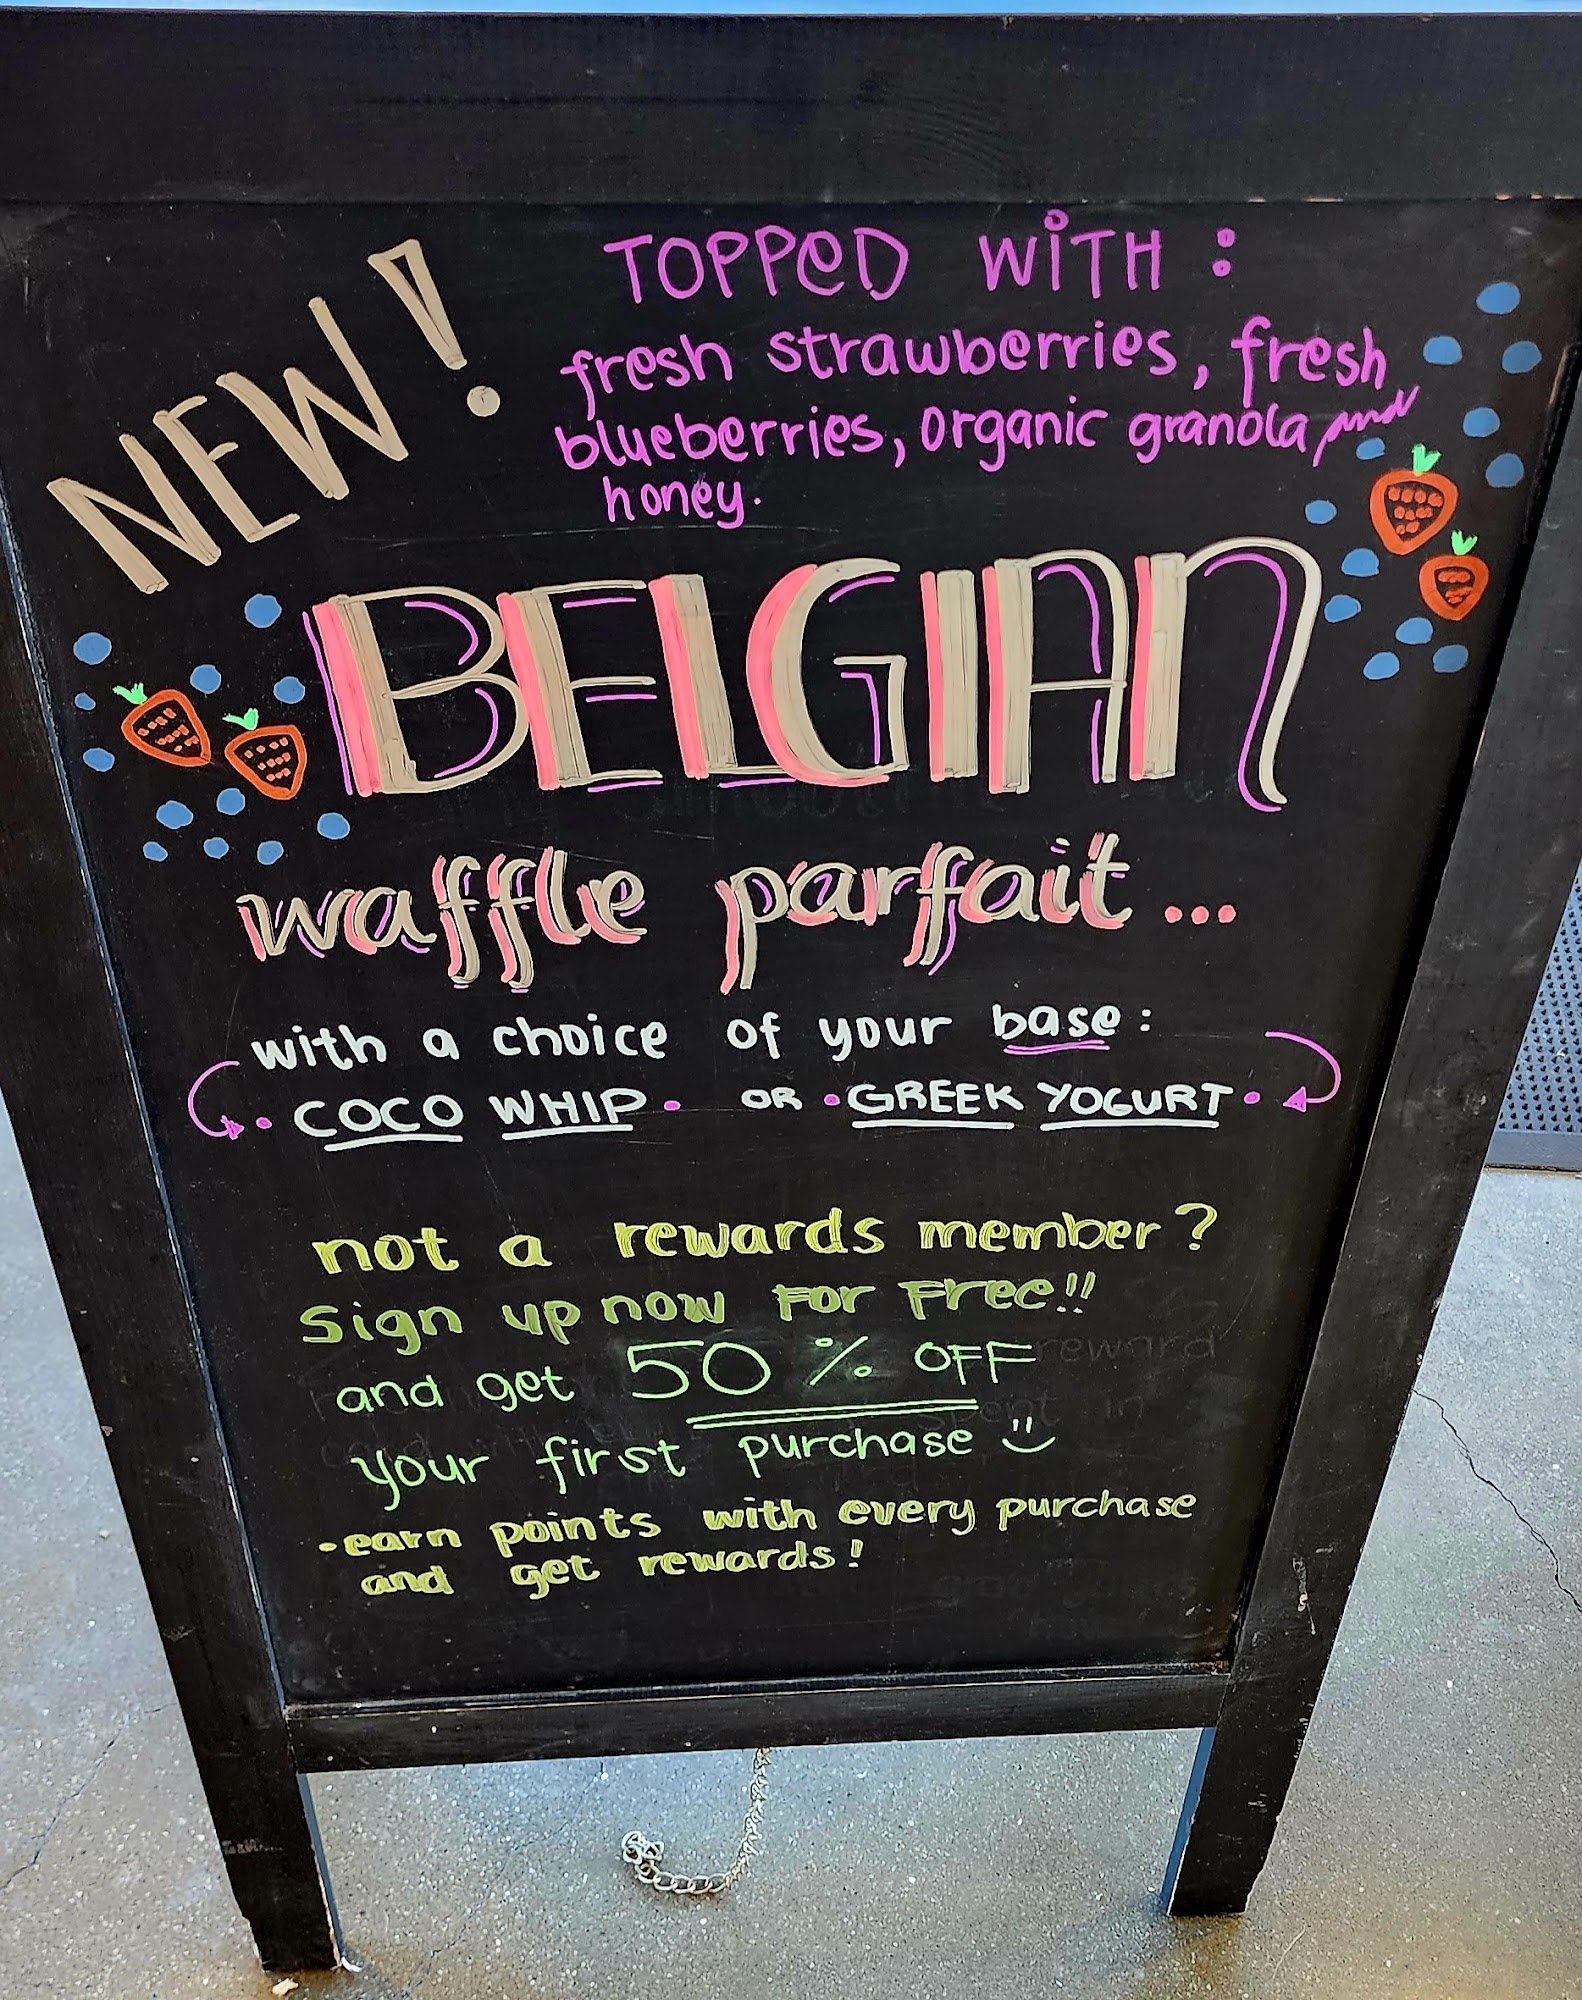 NEW!
TOPPeD WiTH:
fresh strawberries, fresh
blueberries, organic granola and
honey.
BELGIAn
waffle parfait...
with a choice of your base:
COCO WHIP • OR • GREEK YOGURT •
not a rewards member?
Sign up now FOR Free!!
and get 50% OFF
your first purchase
•earn points with every purchase
and get rewards!
reward
spent in